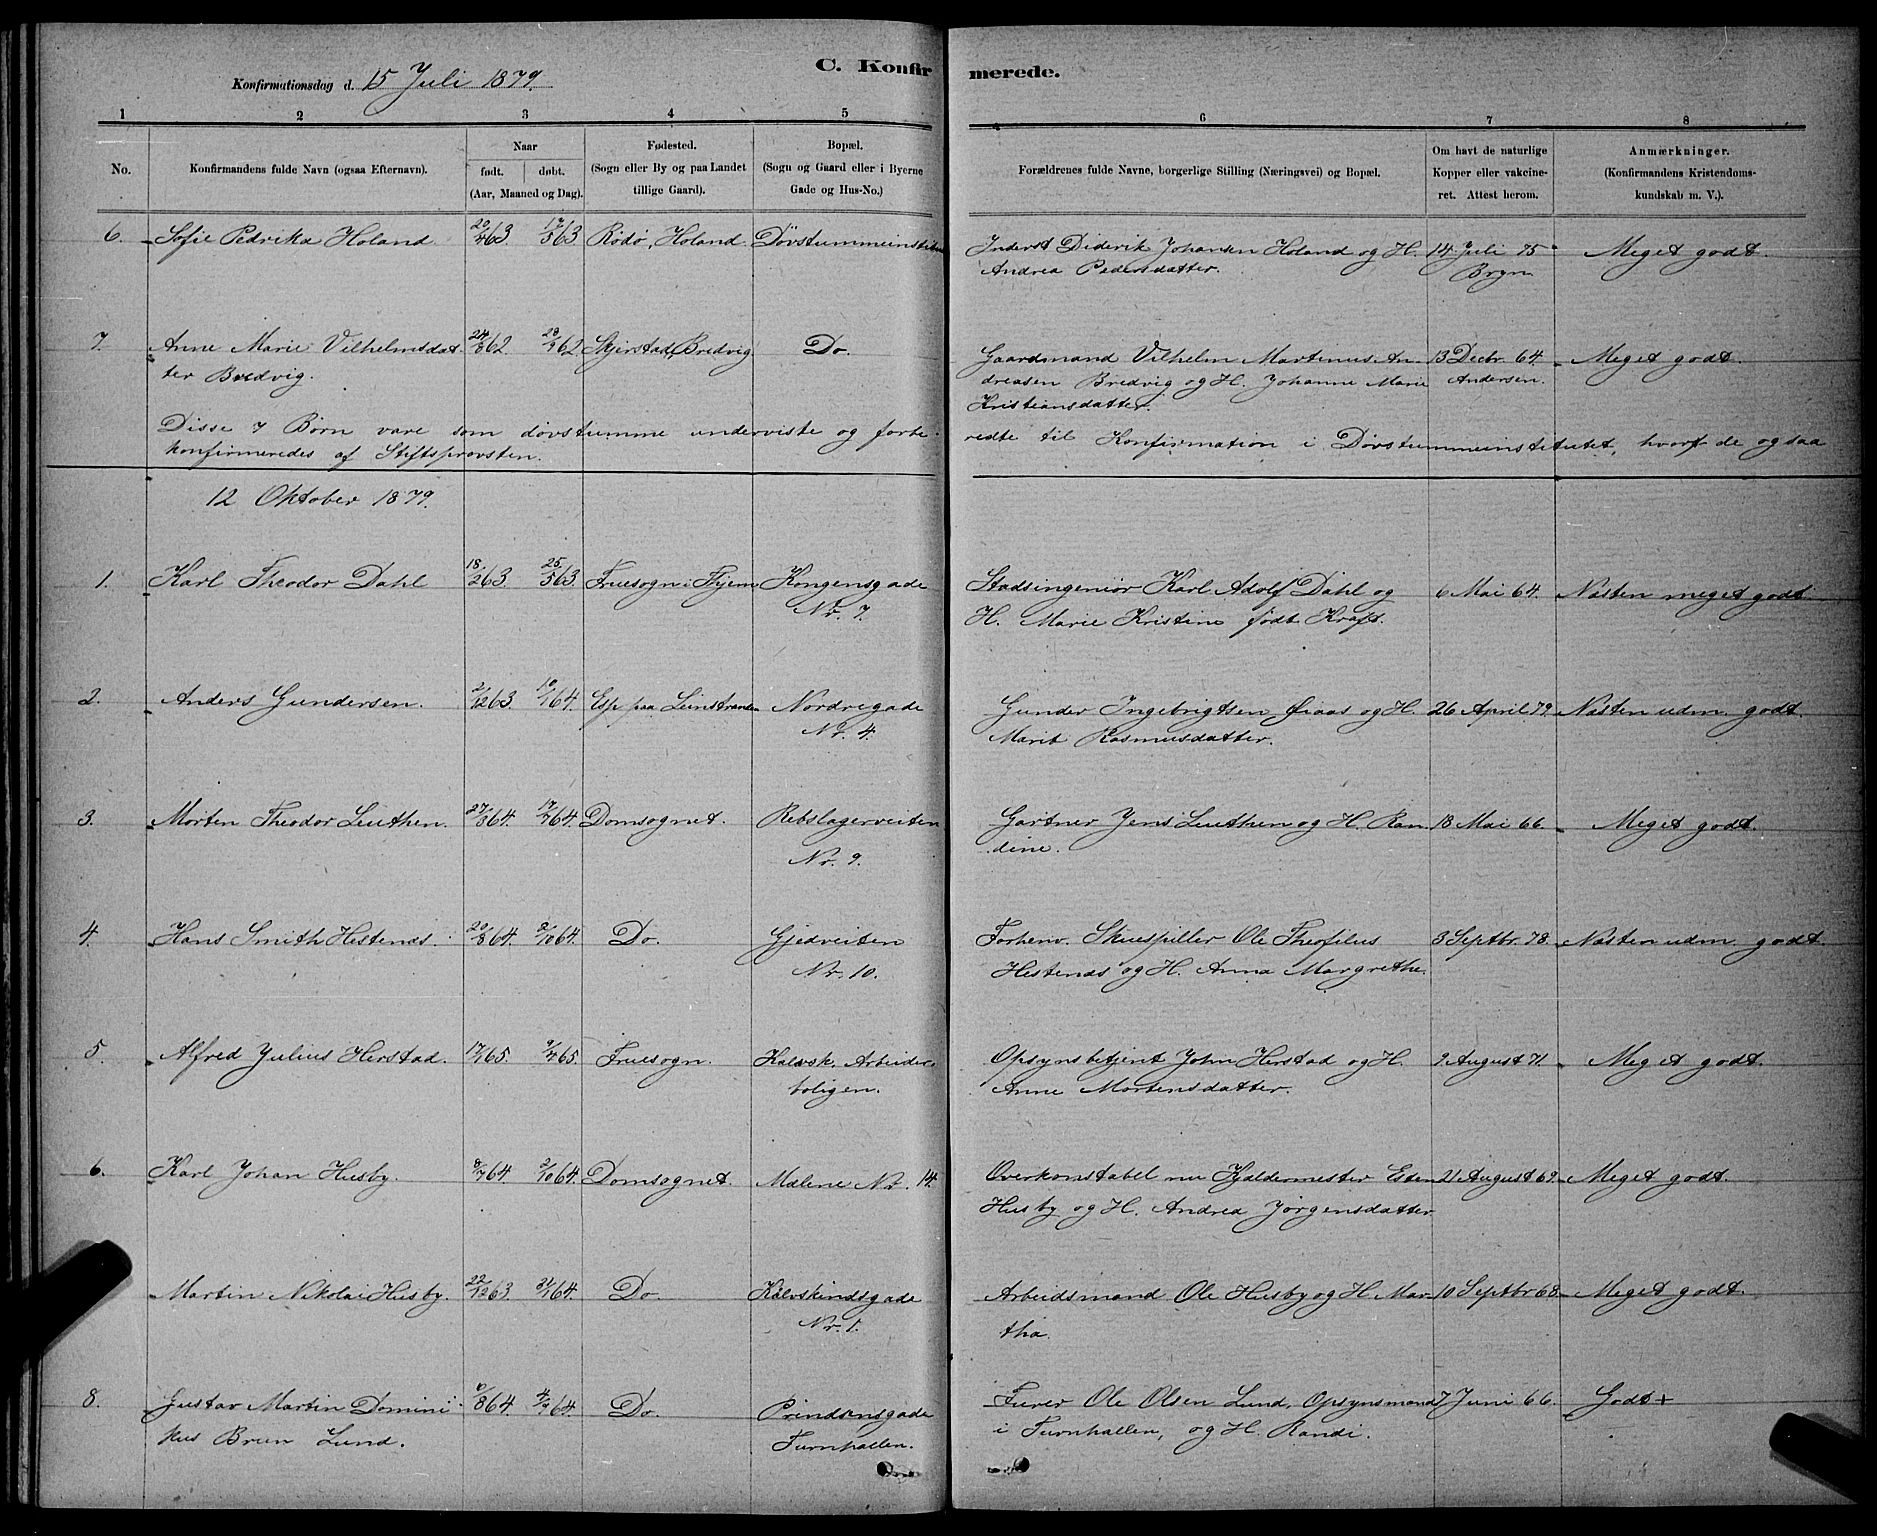 C. Konfirmerede.
Konfirmationsdag d. 15 Juli 1879.
1 2 3 4 5 6 7 8
No. Konfirmandens fulde Navn (ogsaa Efternavn). Naar født. døbt. (Aar, Maaned og Dag). Fødested. (Sogn eller By og paa Landet tillige Gaard). Bopæl. (Sogn og Gaard eller i Byerne Gade og Hus-No.) Forældrenes fulde Navne, borgerlige Stilling (Næringsvei) og Bopæl. Om havt de naturlige Kopper eller vakcineret. Attest herom. Anmærkninger. (Konfirmandens Kristendomskundskab m. V.).
6. Sofie Pedrika Holand 20/4 63 17/5 63 Rødø, Holand Døvstummeinstitut Inderst Diderik Johansen Holand og H. 14 Juli 75 Meget godt.
Andrea Pedersdatter. Bryn
7. Anne Marie Vilhelmsdat 62 62 Skjerstad, Bredvig Do. Gaardmand Vilhelm Martinus An- 13 Decbr. 64. Meget godt.
ter Bredvig. dreasen Bredvig og H. Johanne Marie Andersen.
Kristiansdatter.
Disse 7 Børn vare som døvstumme underviste og forbe- redte til Konfirmation i Døvstummeinstitutet, hvorf de ogsaa
konfirmeredes af Stiftsprovsten.
12 Oktober 1879.
1. Karl Theodor Dahl 18/2 63 25/5 63. Fruesogn i Thjem Kongensgade Stadsingeniør Karl Adolf Dahl og 6 Mai 64. Næsten meget godt.
Nr. 7. H. Marie Kristine født Kraft.
2. Anders Gundersen. 2/12 63. 10/1 64. Esp paa Leinstranden Nordregade Gunder Ingebrigtsen Øiaas og H. 26 April 79. Næsten udm. godt.
Nr. 4. Marit Rasmusdatter.
3. Morten Theodor Leuthen. 27/3 64. 17/7 64. Domsognet. Rebslagerveiten Gartner Jens Leuthen og H. Ran- 18 Mai 66. Meget godt.
Nr. 9. dine.
4. Hans Smith Hestenæs. 20/8 64. 2/10 64. Do. Gjedveiten Forhenv. Skuespiller Ole Theofilus 3 Septbr. 78. Næsten udm. godt.
Nr. 10. Hestenæs og H. Anna Margrethe.
5. Alfred Julius Herstad. 17/1 65. 9/4 65. Fruesogn. Kalvsk. Arbeider- Opsynsbetjent John Herstad og H. 9 August 71. Meget godt.
boligen. Anne Mortensdatter.
6. Karl Johan Husby. 8/7 64. 2/10 64. Domsognet. Mølene Nr. 14. Overkonstabel nu Kjældermester Esten 21 August 69. Meget godt.
Husby og H. Andrea Jørgensdatter
Martin Nikolai Husby. 22/12 63. 31/1 64. Do. Kalvskindsgade Arbeidsmand Ole Husby og H. Mar- 10 Septbr 68. Meget godt.
Nr. 1. tha.
8. Gustav Martin Domini- 6/8 64. 4/9 64. Do. Prindsensgade Furer Ole Olsen Lund, Opsynsmand 7 Juni 66. Godt +
kus Brun Lund. Turnhallen. i Turnhallen, og H. Randi.